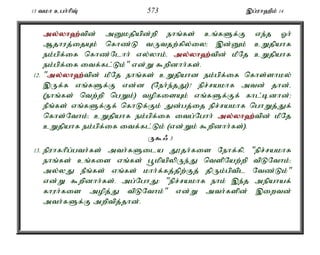 13 வமா உபர்ரிஉ 573 இப்ராஹீம் 14
அல்லாஹ்வின் அனுமதியின்றி நாங்கள் உங்களுக்கு எந்த ஓர்
ஆதாரத்தையும் கொண்டு வருவதற்கில்லை; இன்னும் உறுதியாக
நம்பிக்கை கொண்டோர் எல்லாம், அல்லாஹ்வின் மீதே உறுதியாக
நம்பிக்கை வைக்கட்டும்" என்று கூறினார்கள்.
12. "அல்லாஹ்வின் மீதே நாங்கள் உறுதியான நம்பிக்கை கொள்ளாமல்
இருக்க எங்களுக்கு என்ன (நேர்ந்தது)! நிச்சயமாக அவன் தான்,
(நாங்கள் வெற்றி பெறும்) வழிகளையும் எங்களுக்குக் காட்டினான்;
நீங்கள் எங்களுக்குக் கொடுக்கும் துன்பத்தை நிச்சயமாக பொறுத்துக்
கொள்வோம்; உறுதியாக நம்பிக்கை வைப்போர் அல்லாஹ்வின் மீதே
உறுதியாக நம்பிக்கை வைக்கட்டும் (என்றும் கூறினார்கள்).
ருகூஃ 3
13. நிராகரிப்பவர்கள் அவர்களுடைய தூதர்களை நோக்கி, "நிச்சயமாக
நாங்கள் உங்களை எங்கள் பூமியிலிருந்து வெளியேற்றி விடுவோம்;
அல்லது நீங்கள் எங்கள் மார்க்கத்திற்குத் திரும்பிவிட வேண்டும்"
என்று கூறினார்கள். அப்போது "நிச்சயமாக நாம் இந்த அநியாயக்
காரர்களை அழித்து விடுவோம்" என்று அவர்களின் இறைவன்
அவர்களுக்கு அறிவித்தான்.